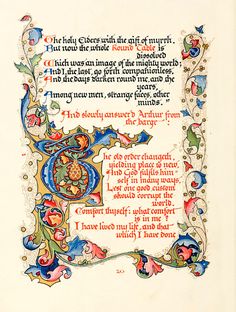 The holy Elders with the gift of myrrh.
But now the whole Round Table is
dissolved
Which was an image of the mighty world;
And I, the last, go forth companionless,
And the days darken round me, and the
years,
Among new men, strange faces, other
minds."
And slowly answer'd Arthur from
the barge:
The old order changeth,
yielding place to new,
And God fulfils him-
self in many ways,
Lest one good custom
should corrupt the
world.
Comfort thyself: what comfort
is in me?
I have lived my life, and that
which I have done